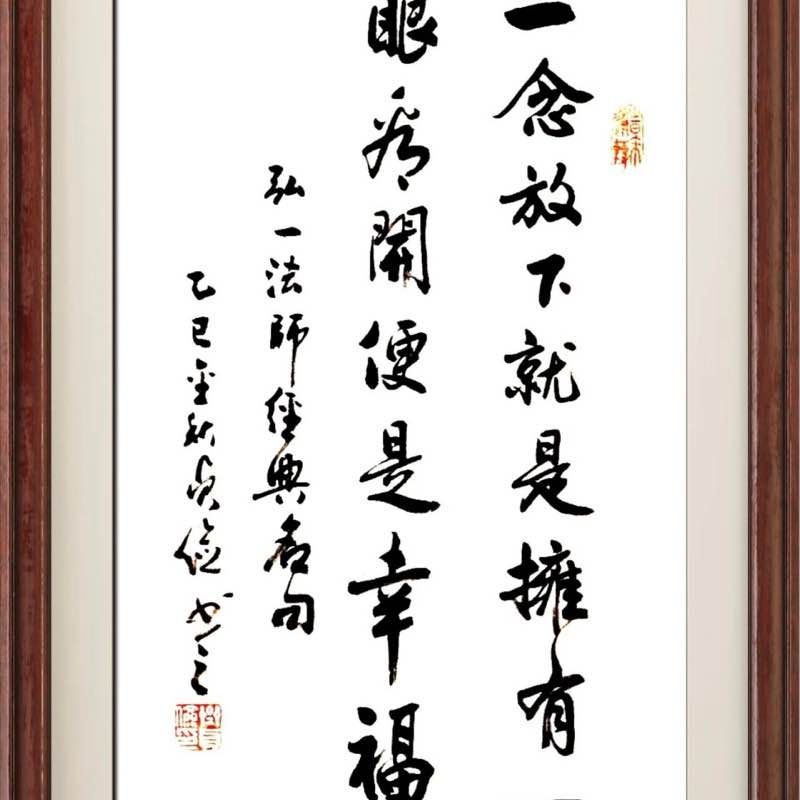 一念放下就是擁有
眼看開便是幸福
弘一法師經典名句
乙巳金秋貞儉书之